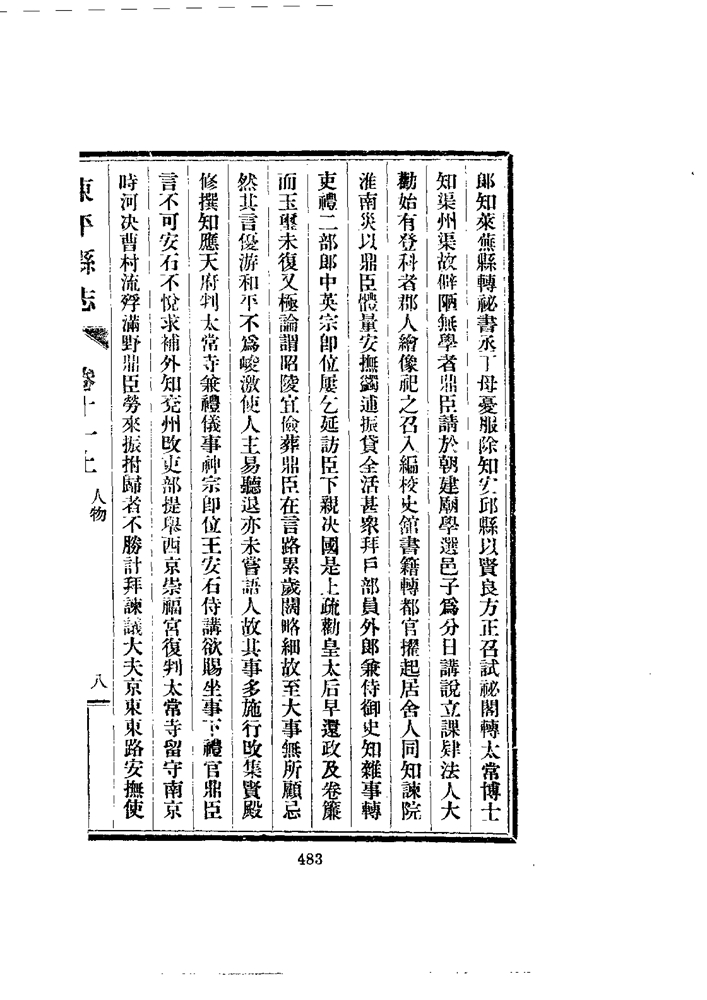 郎知萊蕪縣轉祕書丞丁母憂服除知安邱縣以賢良方正召試祕閣轉太常博士
知渠州渠故僻陋無學者鼎臣請於朝建廟學選邑子爲分日講說立課肄法人大
勸始有登科者郡人繪像祀之召入編校史館書籍轉都官擢起居舍人同知諫院
淮南災以鼎臣體量安撫蠲逋振貸全活甚衆拜戶部員外郎兼侍御史知雜事轉
吏禮二部郎中英宗卽位屢乞延訪臣下親决國是上疏勸皇太后早還政及卷簾
而玉璽未復又極論謂昭陵宜儉葬鼎臣在言路累歲闊略細故至大事無所顧忌
然其言優游和平不爲峻激使人主易聽退亦未嘗語人故其事多施行改集賢殿
修撰知應天府判太常寺兼禮儀事神宗卽位王安石侍講欲賜坐事下禮官鼎臣
言不可安石不悅求補外知兗州改吏部提舉西京崇福宮復判太常寺留守南京
時河决曹村流殍滿野鼎臣勞來振拊歸者不勝計拜諫議大夫京東東路安撫使
東平縣志 卷十一上 人物 八
483